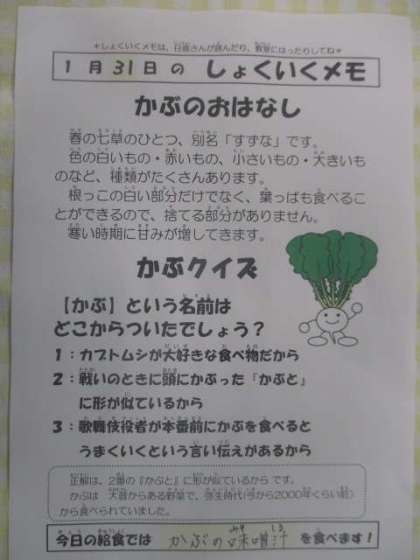 ＊しょくいくメモは、日直さんが読んだり、教室にはったりしてね＊
1月31日の しょくいくメモ
かぶのおはなし
春の七草のひとつ、別名「すずな」です。
色の白いもの・赤いもの、小さいもの・大きいも
のなど、種類がたくさんあります。
根っこの白い部分だけでなく、葉っぱも食べるこ
とができるので、捨てる部分がありません。
寒い時期に甘みが増してきます。
かぶクイズ
【かぶ】という名前は
どこからついたでしょう？
1：カブトムシが大好きな食べ物だから
2：戦いのときに頭にかぶった『かぶと』
に形が似ているから
3：歌舞伎役者が本番前にかぶを食べると
うまくいくという言い伝えがあるから
正解は、2番の『かぶと』に形が似ているから です。
かぶは 大昔からある野菜で、弥生時代(今から2000年くらい前)
から食べられていました。
今日の給食では かぶの味噌汁 を食べます！